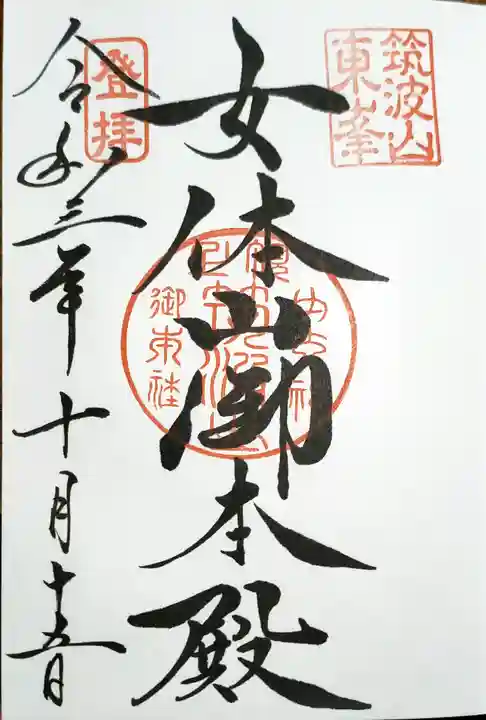 筑波山
東峯
女体山御本殿
登拝
令和三年十月十五日